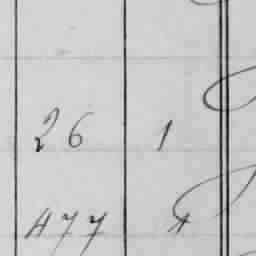 26 1
477